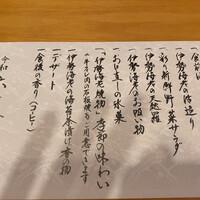 一食前酒
一伊勢海老の活造り
一彩り新鮮野菜サラダ
一伊勢海老の天婦羅
一伊勢海老のお吸い物
一お口直しの氷菓
一「伊勢海老焼物」季節の味わい
(牛ヒレ肉の石板焼もご用意できます)
一伊勢海老の海苔茶漬け 香の物
一デザート
一食後の香り(コーヒー)
令和六